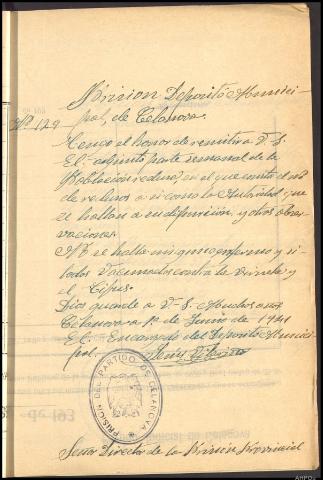 Nº 129
Pricion Deposito Munici-
pal, de Celanova.
Tengo el honor de remitir a V. S.
El adjunto parte semanal de la
Poblacion reclusa, en el que consta el nº
de reclusos a si como la Autoridad, que
se hallan a su disposición, y otras obser-
vaciones.
No se halla ninguno enfermo y si
todos Vacunados contra la viruela y
el Tifus.
Dios guarde a V. S. Muchos años
Celanova a 1º de Junio de 1941
El Encargado del Deposito Munici-
pal.
PRISIÓN DEL PARTIDO DE CELANOVA
Señor Director de la Prision Provincial
AHPOU